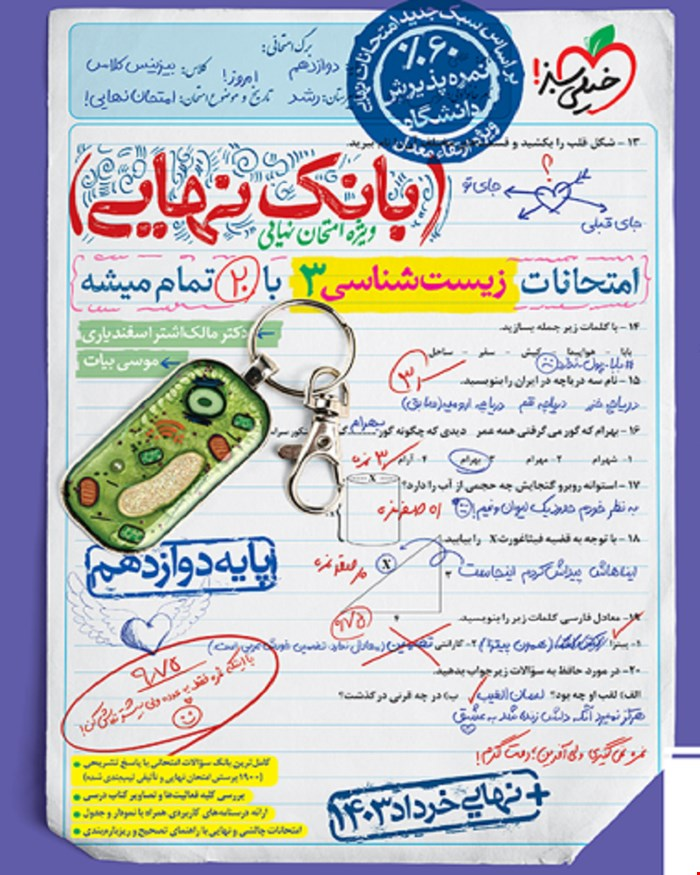 برگ امتحانی:
دوازدهم
کلاس: بیزینس کلاس
امروز!
رشد
تاریخ و موضوع امتحان: امتحان نهایی!
بر اساس سبک جدید امتحانات نهایی
٪۶۰
نمره پذیرش
دانشگاه
ویژه ارتقاء معدل
خیلی سبز!
۱۳- شکل قلب را بکشید و ببرید.
؟
جای تو
جای قبلی
(بانک نهایی)
ویژه امتحان نهایی
امتحانات زیست‌شناسی ۳ با ۲۰ تمام میشه
دکتر مالک‌اشتر اسفندیاری
موسی بیات
۱۴- با کلمات زیر جمله بسازید.
بابا - هواپیما - کیش - سفر - ساحل
#بابا_پول_نداره
۳
۱۵- نام سه دریاچه در ایران را بنویسید.
دریاچه خزر دریاچه قم دریاچه ارومیه (سابق)
بهرام
۱۶- بهرام که گور می‌گرفتی همه عمر دیدی که چگونه گور
۱- شهرام ۲- مهرام ۳- بهرام ۴- آرام
۳ نمره
۱۷- استوانه روبرو گنجایش چه حجمی از آب را دارد؟
X
به نظر خودم حدود یک لیوان و نیم!
۱۸- با توجه به قضیه فیثاغورث X را بیابید.
ایناهاش پیداش کردم اینجاست
X
۳
۴
پایه دوازدهم
۹/۷۵
۱۹- معادل فارسی کلمات زیر را بنویسید.
۱- پیتزا (همون پیتزا) ۲- گارانتی تضمین
۲۰- در مورد حافظ به سؤالات زیر جواب بدهید.
الف) لقب او چه بود؟ لسان الغیب ب) در چه قرنی درگذشت؟
هرگز نمیرد آنکه دلش زنده شد به عشق
۹/۷۵
نمره نمی‌گیری ولی آفرین! دمت گرم!
کامل‌ترین بانک سؤالات امتحانی با پاسخ تشریحی
(۱۹۰۰ پرسش امتحان نهایی و تألیفی تیپ‌بندی شده)
بررسی کلیه فعالیت‌ها و تصاویر کتاب درسی
ارائه درسنامه‌های کاربردی همراه با نمودار و جدول
امتحانات چالشی و نهایی با راهنمای تصحیح و ریزبارم‌بندی
+ نهایی خرداد ۱۴۰۳